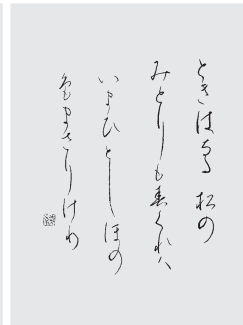 ときはなる 松の
みとりも春くれハ
いまひとしほの
色まさりけり